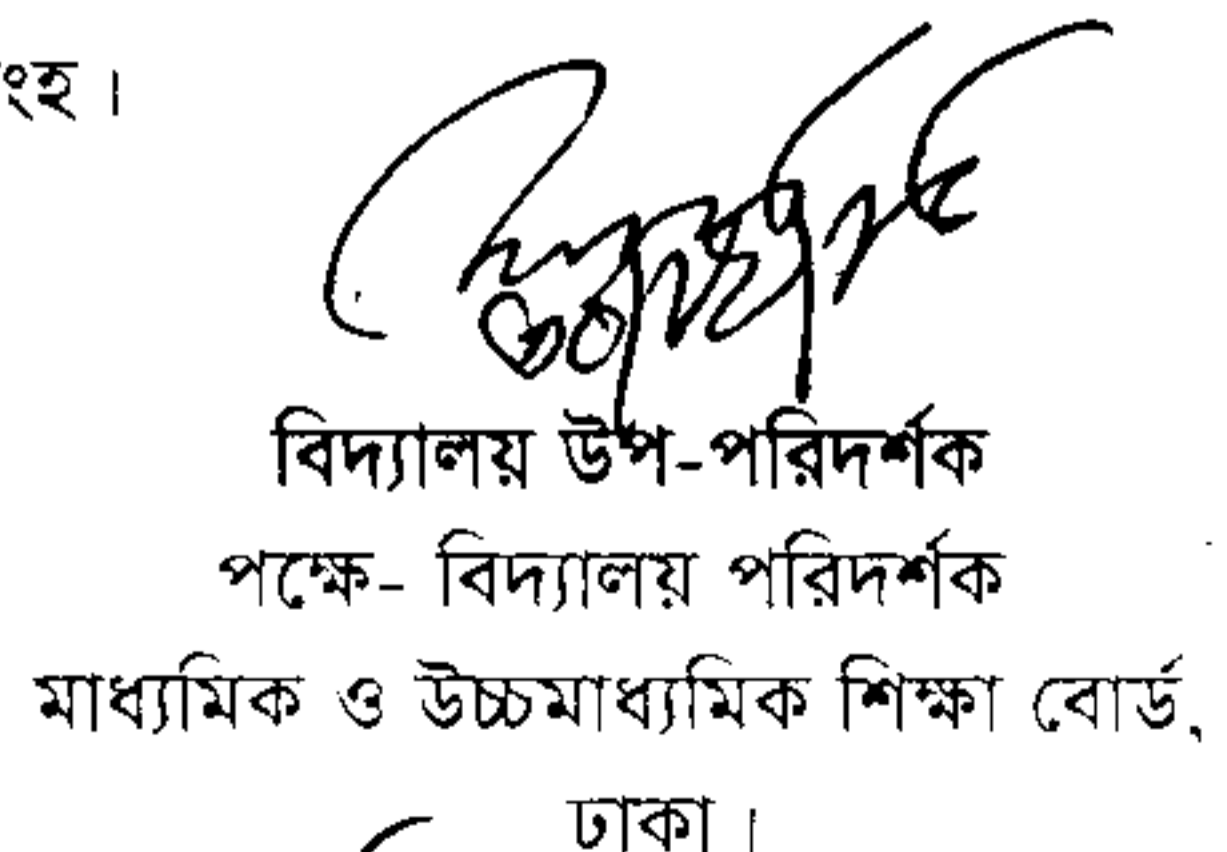 ংহ ।
বিদ্যালয় উপ-পরিদর্শক
পক্ষে- বিদ্যালয় পরিদর্শক
মাধ্যমিক ও উচ্চমাধ্যমিক শিক্ষা বোর্ড,
ঢাকা ।